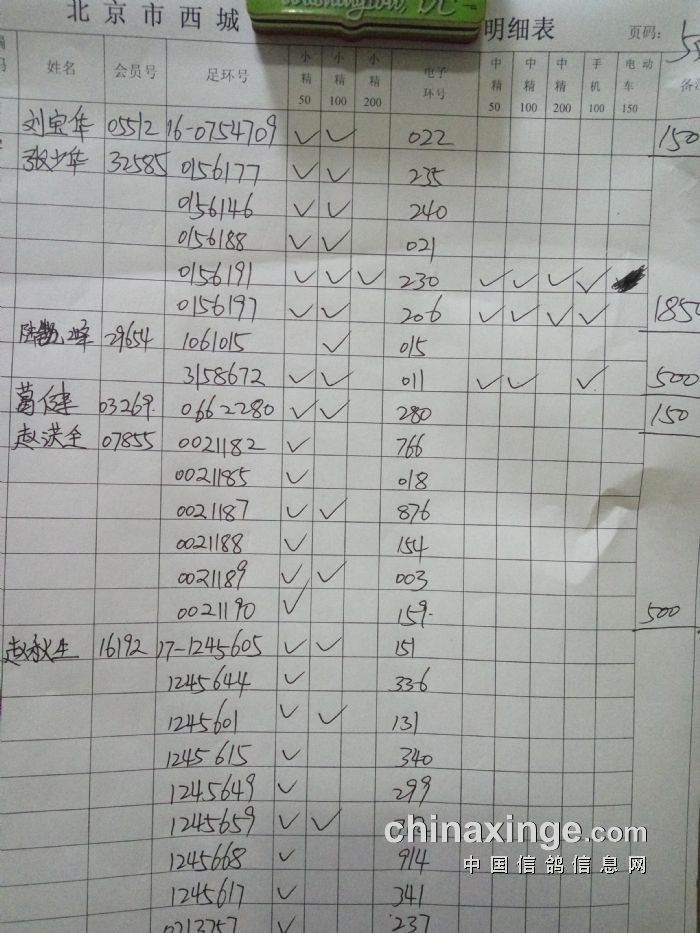 北京市西城 Washington, DC 明细表 页码：
姓名 会员号 足环号 小精50 小精100 小精200 电子环号 中精50 中精100 中精200 手机100 电动车150
刘宝华 05512 16-0754709 ✓ ✓ 022 150
张少华 32585 0156177 ✓ ✓ 235
0156146 ✓ ✓ 240
0156188 ✓ ✓ 021
0156191 ✓ ✓ ✓ 230 ✓ ✓ ✓ ✓
0156197 ✓ ✓ 206 ✓ ✓ ✓ ✓ 1850
29654 1061015 ✓ 015
3158672 ✓ ✓ 011 ✓ ✓ ✓ 500
葛健 03269 0662280 ✓ ✓ 280 150
赵洪全 07855 0021182 ✓ 766
0021185 ✓ 018
0021187 ✓ ✓ 876
0021188 ✓ 154
0021189 ✓ ✓ 003
0021190 ✓ 159 500
赵秋生 16192 17-1245605 ✓ ✓ 151
1245644 ✓ 336
1245601 ✓ ✓ 131
1245615 ✓ 340
1245649 ✓ 299
1245659 ✓ ✓
chinaxinge.com
1245668 ✓ 914
中国信鸽信息网
1245617 ✓ 341
0213757 ✓ 237